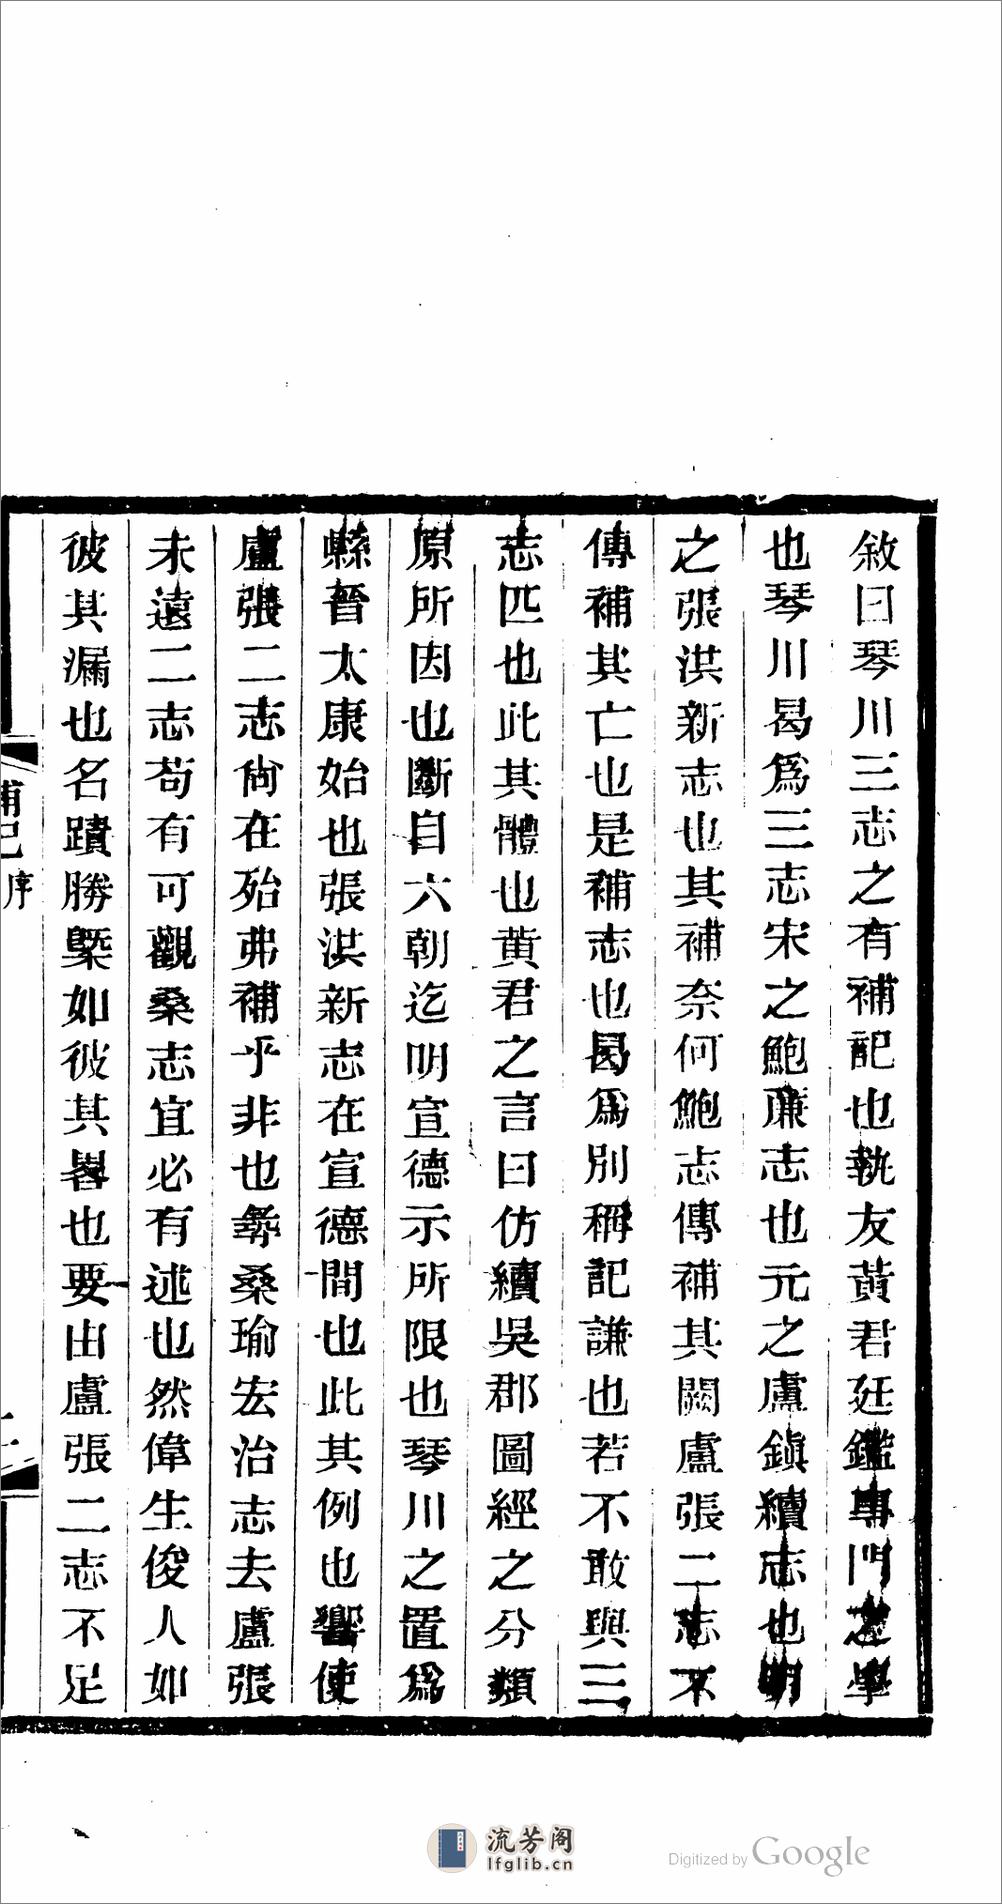 敘曰琴川三志之有補記也執友黃君廷鑑專門之學
也琴川曷爲三志宋之鮑廉志也元之盧鎭續志也明
之張洪新志也其補奈何鮑志傳補其闕盧張二志不
傳補其亡也是補志也曷爲別稱記謙也若不敢與三
志匹也此其體也黃君之言曰仿續吳郡圖經之分類
原所因也斷自六朝迄明宣德示所限也琴川之置爲
縣晉太康始也張洪新志在宣德間也此其例也嚮使
盧張二志尙在殆弗補乎非也粤桑瑜宏治志去盧張
未遠二志苟有可觀桑志宜必有述也然偉生俊人如
彼其漏也名蹟勝槩如彼其畧也要由盧張二志不足
補記序
流芳阁
lfglib.cn
Digitized by Google